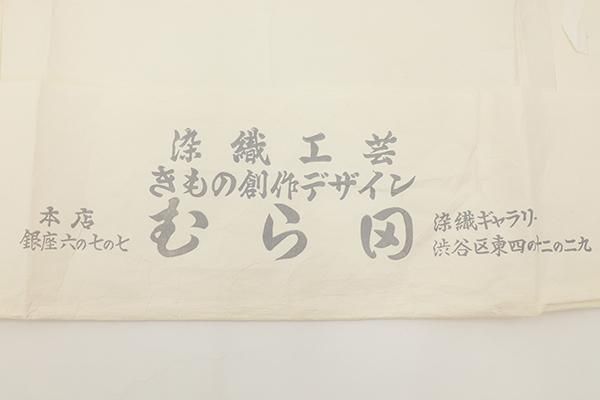 染織工芸
きもの創作デザイン
むら岡
本店
銀座六の七の七
染織ギャラリー
渋谷区東四の十二の二九